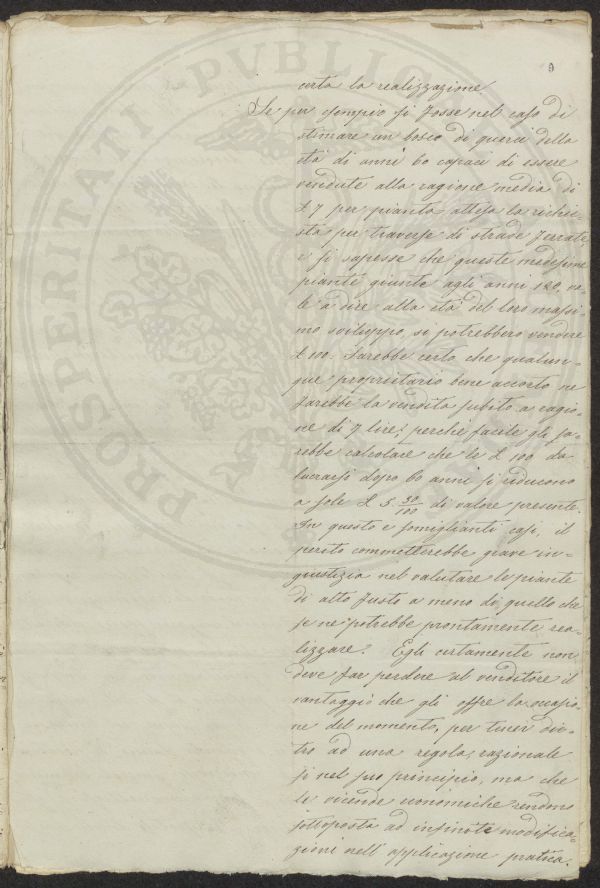 9
certa la realizzazione.
Se per esempio si fosse nel caso di
stimare un bosco di querci della
età di anni 60 capaci di essere
vendute alla ragione media di
£ 7 per pianta attesa la richie-
sta per traverse di strade ferrate,
e si sapesse che queste medesime
piante giunte agli anni 120, va-
le a dire alla età del loro massi-
mo sviluppo, si potrebbero vendere
£ 100: sarebbe certo che qualun-
que proprietario bene accorto ne
farebbe la vendita subito a ragio-
ne di 7 lire; perchè facile gli sa-
rebbe calcolare che le £ 100 da
lucrarsi dopo 60 anni si riducono
a sole £ 5 30/100 di valore presente.
In questo e somiglianti casi, il
perito commetterebbe grave in-
giustizia nel valutare le piante
di alto fusto a meno di quello che
se ne potrebbe prontamente rea-
lizzare. Egli certamente non
deve far perdere al venditore il
vantaggio che gli offre la occasio-
ne del momento, per tener die-
tro ad una regola, razionale
sì nel suo principio, ma che
le vicende economiche rendono
sottoposta ad infinite modifica-
zioni nell'applicazione pratica.
PROSPERITATI PVBLIC